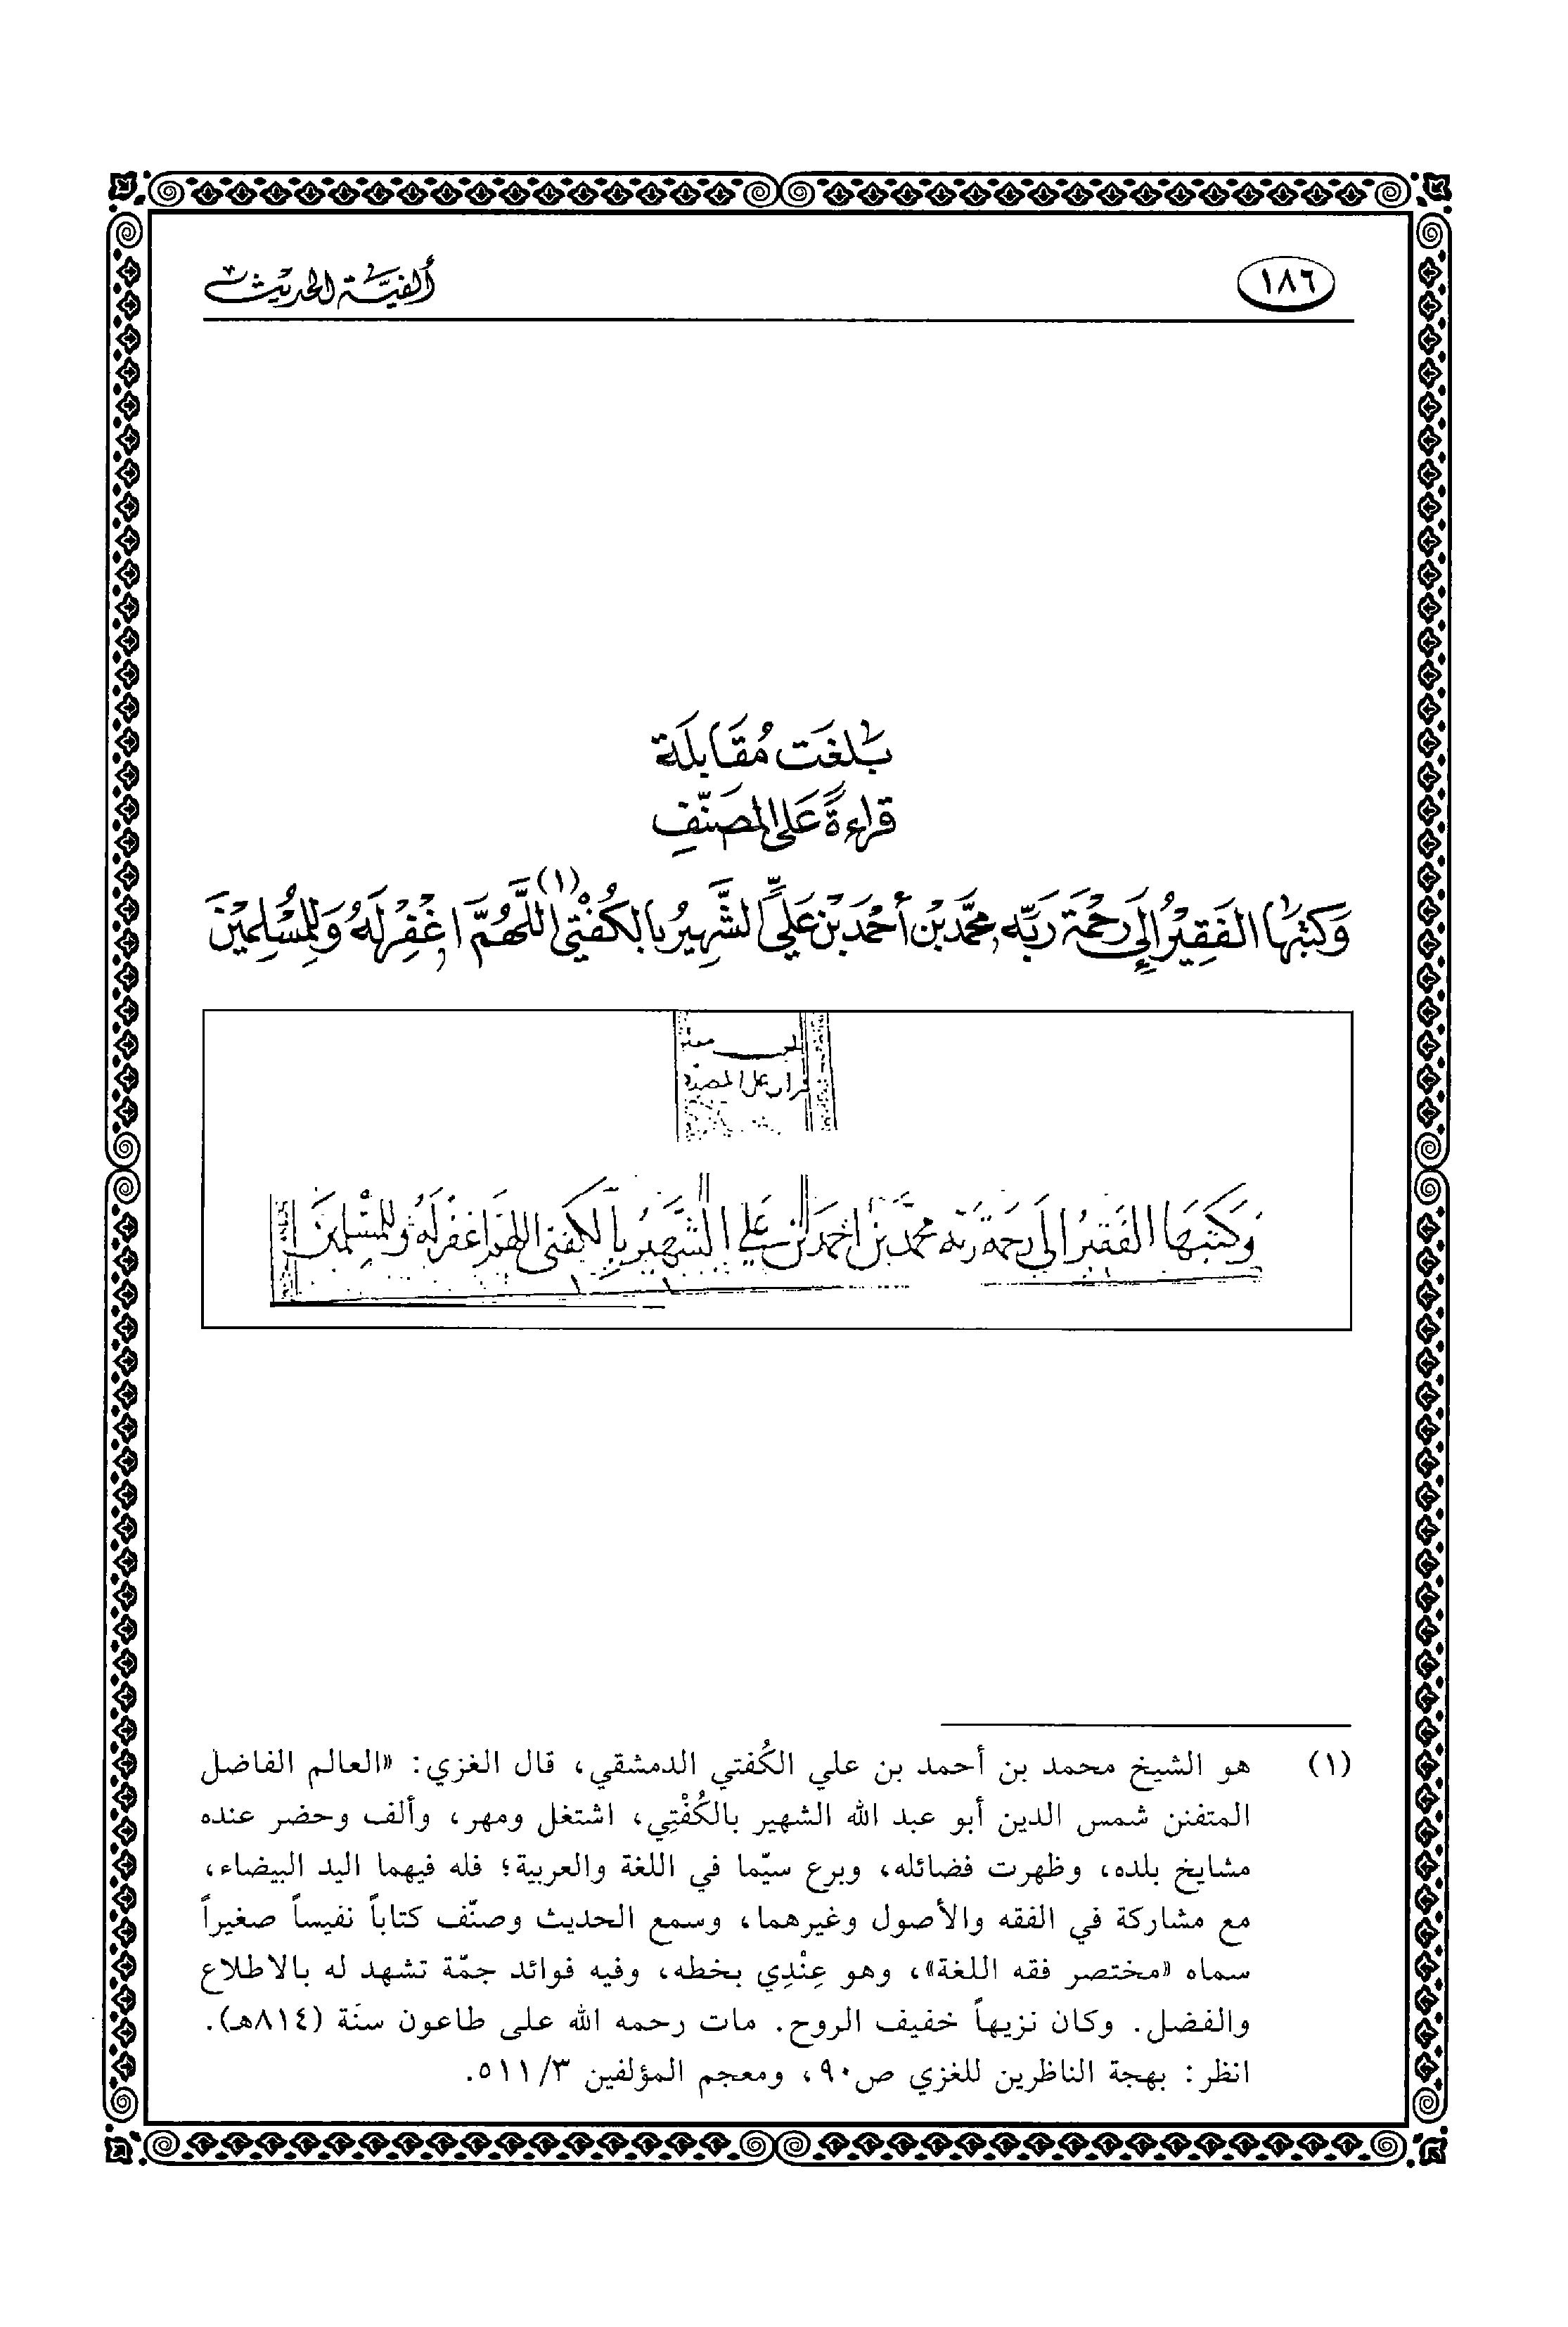 ١٨٦
ألفيّة الحديث
بَلَغَت مُقَابلَة
قراءةً عَلى المصَنّفِ
وَكَتبَهَا الفَقِيْرُ إلَى رَحْمَة رَبّه محمَّد بْن أحْمَد بْن عَليٍّ الشَّهِيرُ بالكُفْتي (١) اللَّهُمَّ اغْفِرْ لَهُ وَلِلمُسْلِمِيْنَ
قراءة على المصنف
وَكَتَبَهَا الفَقِيرُ إلى رَحمَة رَبّه محمَّد بن احمَد بن عَلي الشَّهِيرُ بالكفتي اللهمَّ اغفر لَهُ وللمسْلِمينَ
(١) هو الشيخ محمد بن أحمد بن علي الكُفتي الدمشقي، قال الغزي: «العالم الفاضل
المتفنن شمس الدين أبو عبد الله الشهير بالكُفْتِي، اشتغل ومهر، وألف وحضر عنده
مشايخ بلده، وظهرت فضائله، وبرع سيّما في اللغة والعربية؛ فله فيهما اليد البيضاء،
مع مشاركة في الفقه والأصول وغيرهما، وسمع الحديث وصنّف كتاباً نفيساً صغيراً
سماه «مختصر فقه اللغة»، وهو عِنْدِي بخطه، وفيه فوائد جمّة تشهد له بالاطلاع
والفضل. وكان نزيهاً خفيف الروح. مات رحمه الله على طاعون سنَة (٨١٤هـ).
انظر: بهجة الناظرين للغزي ص٩٠، ومعجم المؤلفين ٣/ ٥١١.